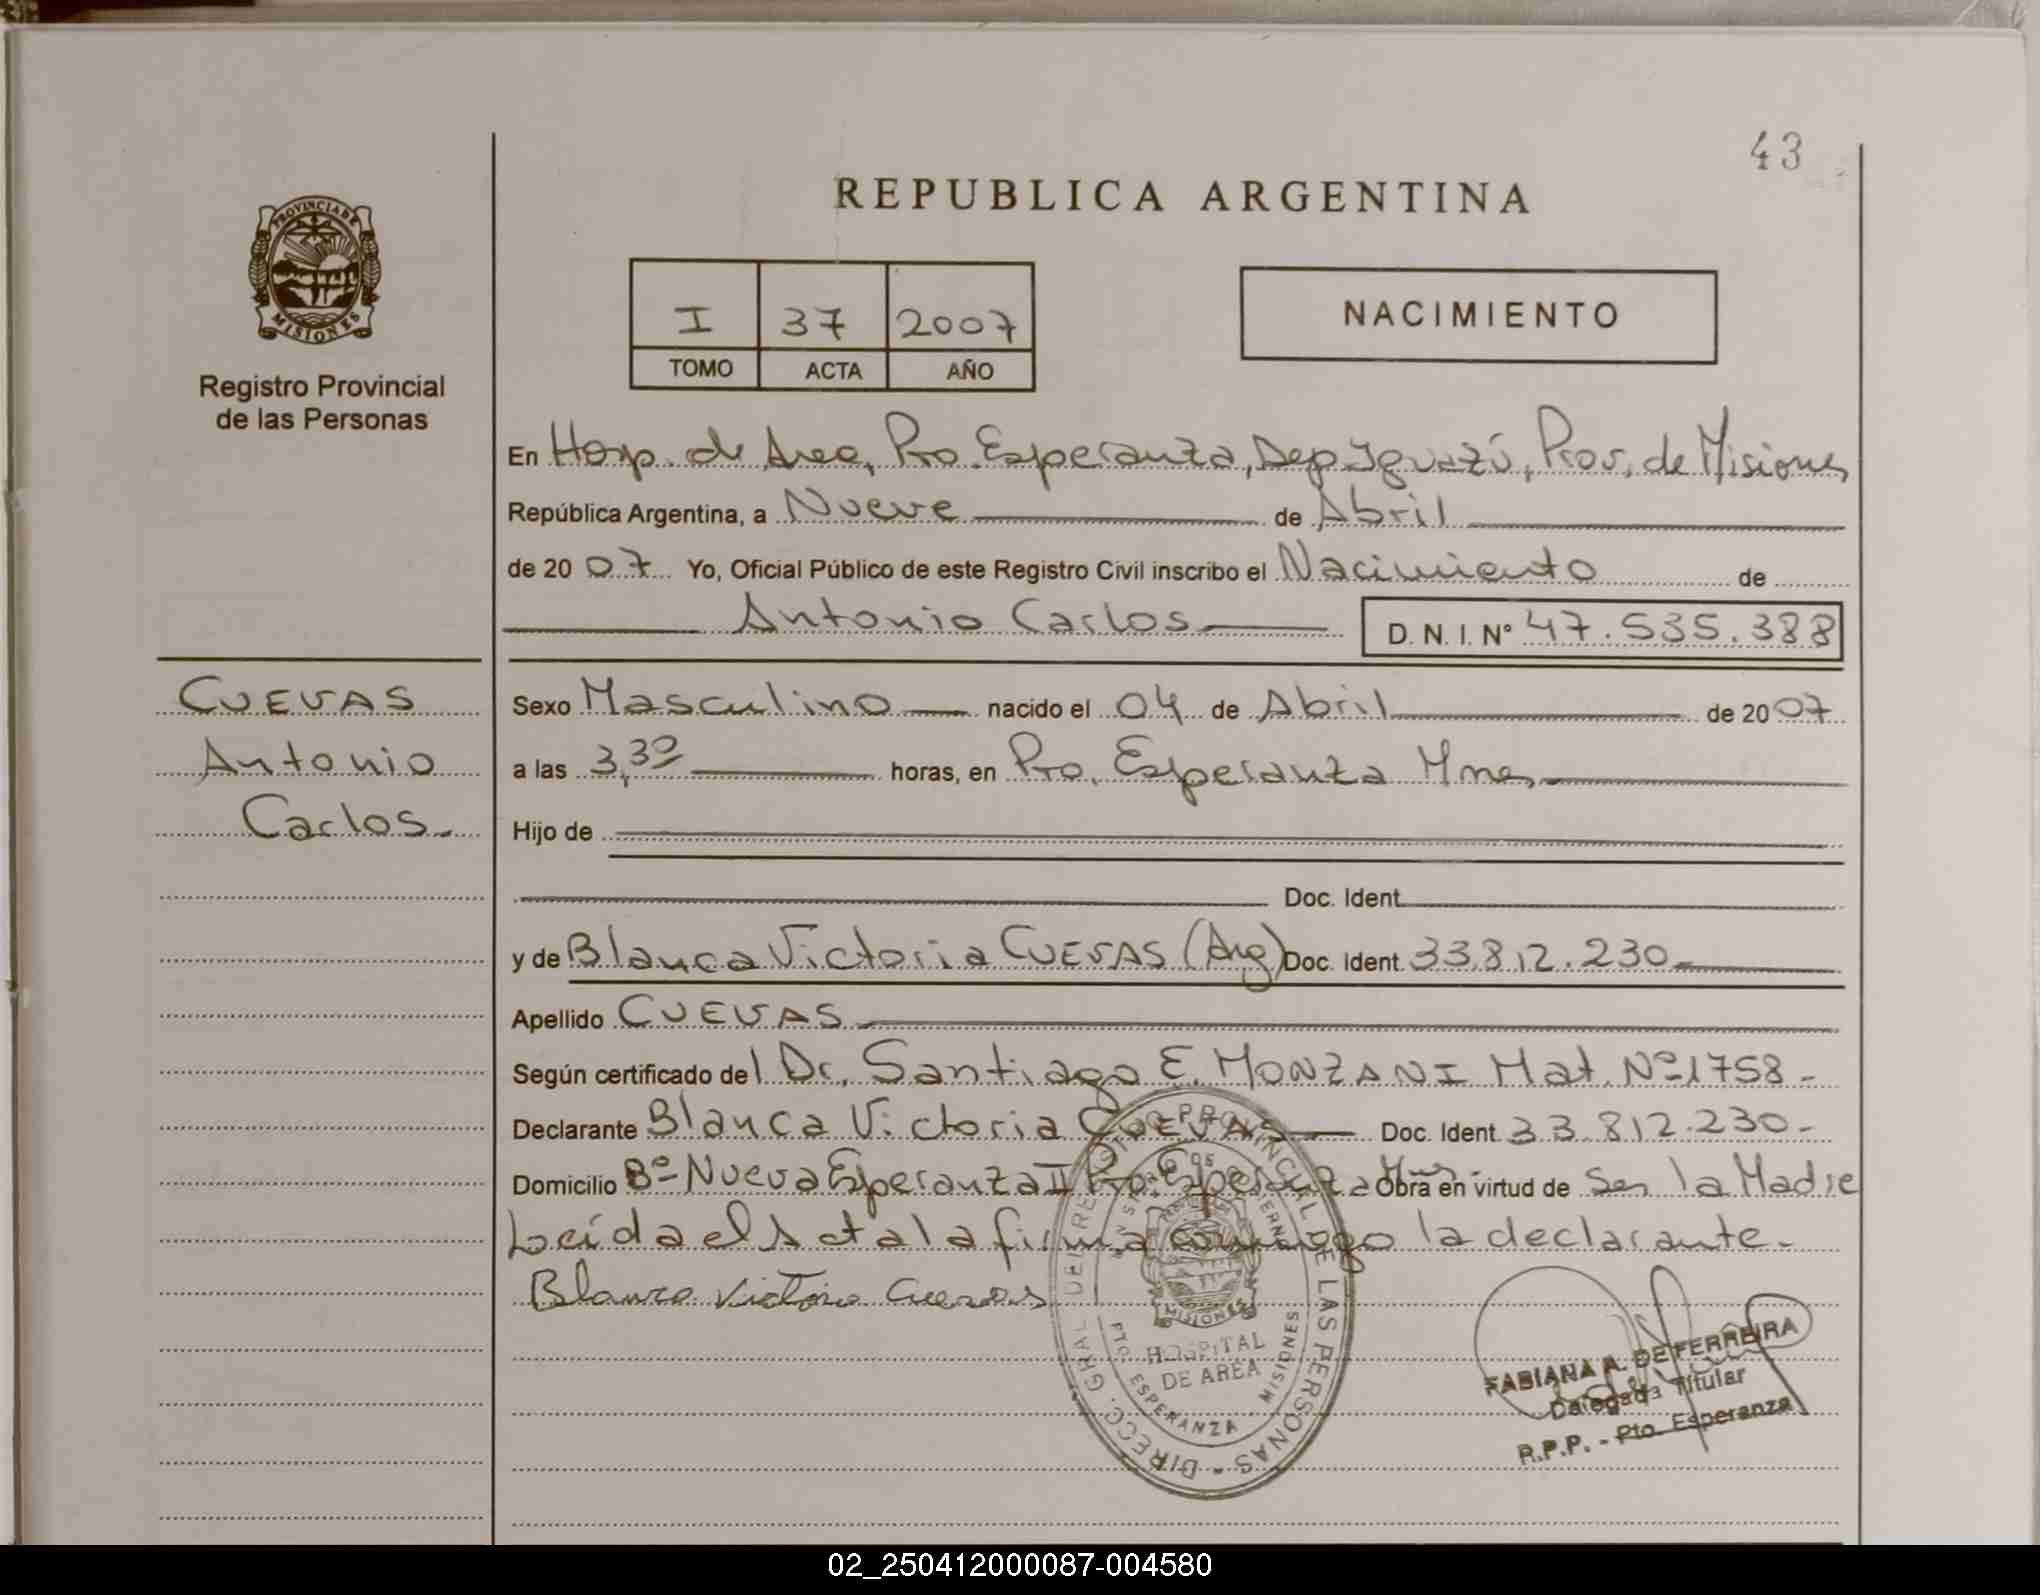 43
REPUBLICA ARGENTINA
PROVINCIA DE
MISIONES
Registro Provincial
de las Personas
I 37 2007
TOMO ACTA AÑO
NACIMIENTO
En Hosp. de Area, Pto. Esperanza, Dep Iguazú, Prov. de Misiones
República Argentina, a Nueve de Abril
de 20 07 Yo, Oficial Público de este Registro Civil inscribo el Nacimiento de
Antonio Carlos D. N. I. N° 47.535.388
CUEVAS
Antonio
Carlos.
Sexo Masculino nacido el 04 de Abril de 20 07
a las 3,30 horas, en Pto. Esperanza Mnes
Hijo de
Doc. Ident.
y de Blanca Victoria CUEVAS (Arg) Doc. Ident. 33.812.230
Apellido CUEVAS
Según certificado del Dr. Santiago E. MONZANI Mat. Nº 1758-
Declarante Blanca Victoria CUEVAS Doc. Ident. 33.812.230-
Domicilio Bº Nueva Esperanza II Pto. Esperanza Mnes. Obra en virtud de Ser la Madre
Leída el Acta la firma conmigo la declarante-
Blanca Victoria Cuevas
DIRECC. GRAL DEL REGISTRO PROVINCIAL DE LAS PERSONAS
MISIONES
HOSPITAL
DE AREA
PTO. ESPERANZA - MISIONES
FABIANA A. DE FERREIRA
Delegada Titular
R.P.P. - Pto. Esperanza
02_250412000087-004580